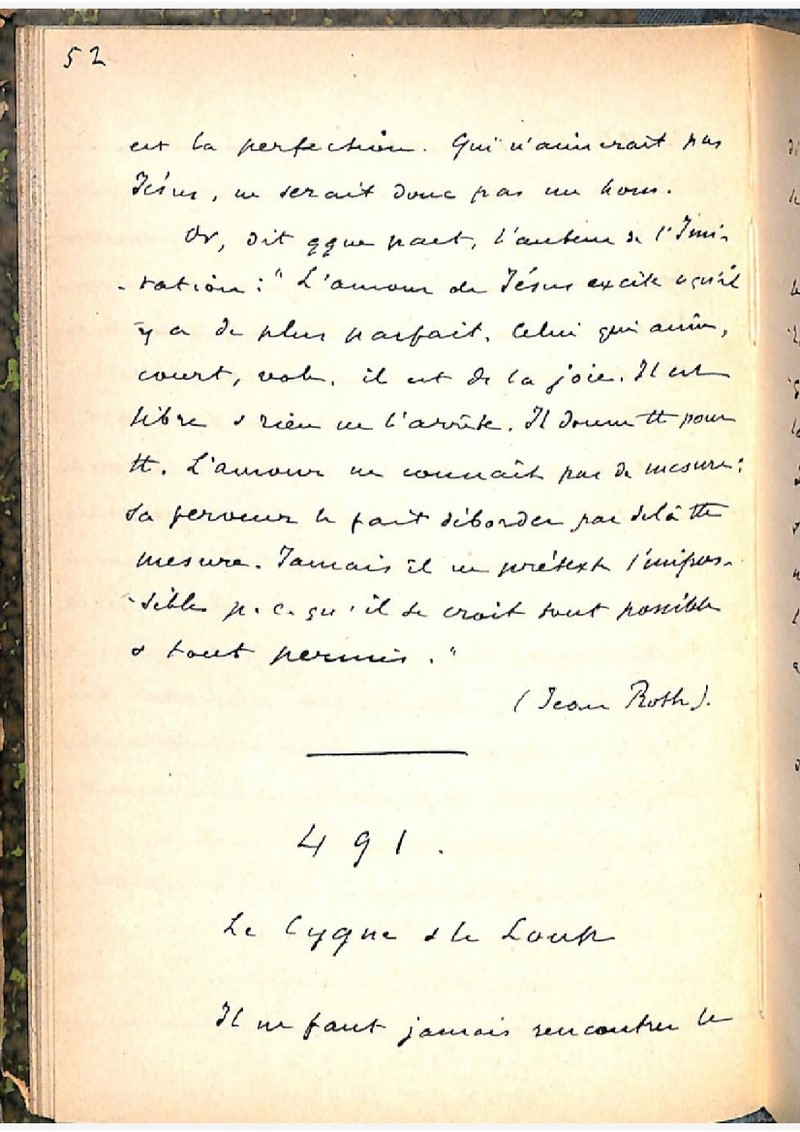 52
est la perfection. Qui n'aimerait pas
Jésus, ne serait donc pas un hom.
Or, dit qque part, l'auteur de l'Imi-
-tation : " L'amour de Jésus excite à ce qu'il
y a de plus parfait. Celui qui aime,
court, vole. il est de la joie. Il est
libre & rien ne l'arrête. Il donne tt pour
tt. L'amour ne connaît pas de mesure :
sa ferveur le fait déborder par delà tte
mesure. Jamais il ne prétexte l'impos-
-sible p. c. qu'il se croit tout possible
& tout permis. "
(Jean Roth).
491.
Le Cygne & le Loup
Il ne faut jamais rencontrer le